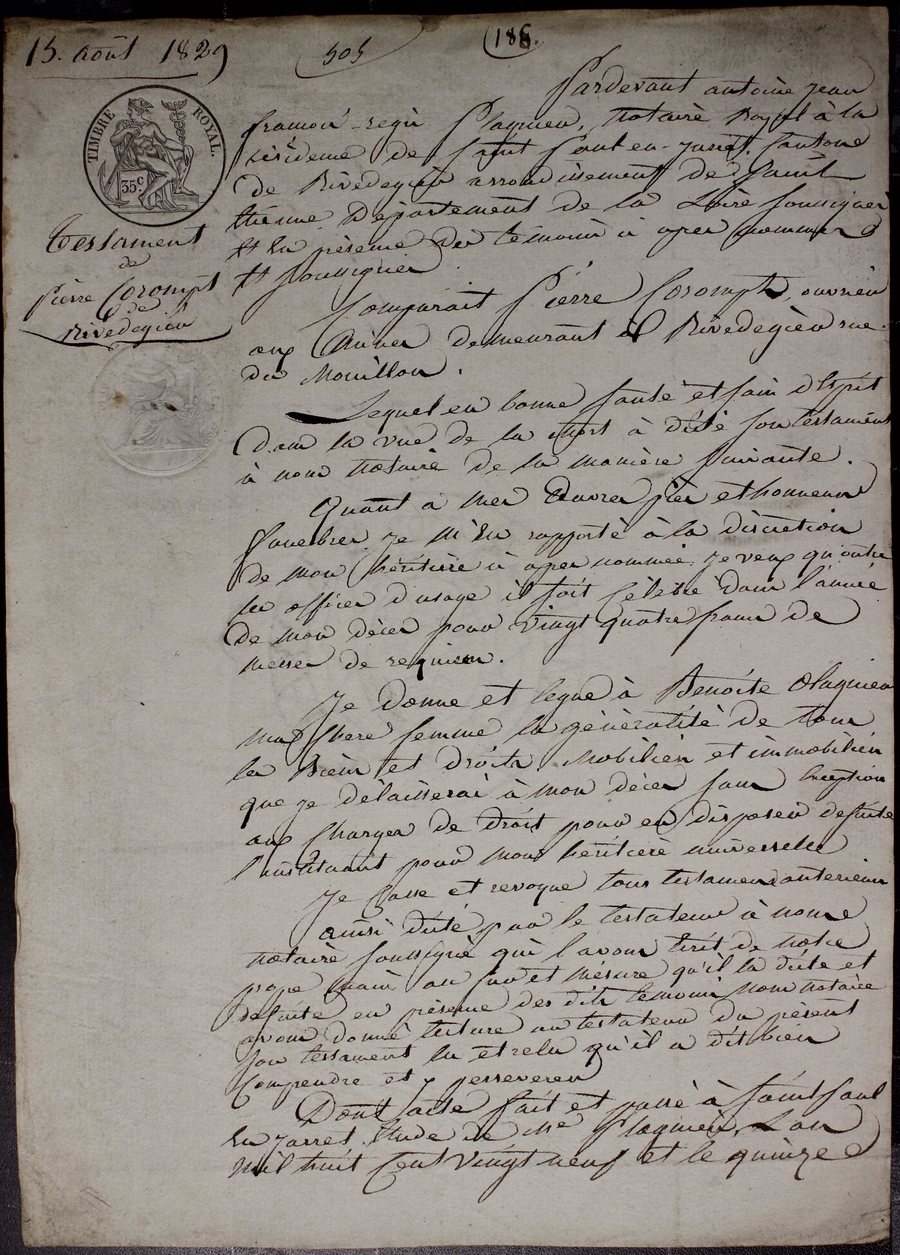 15. août 1829
505
186.
TIMBRE ROYAL.
35c
Testament
de
Pierre Corompt
de
Rivedegier
Pardevant antoine jean
francois regis Plagnieu, Notaire Royal à la
résidence de Saint Paul en-jarret, Canton
de Rivedegier arrondissement de Saint
Etienne, Département de la Loire soussigner
Et En présence des témoins ci apres nommer
Et soussigner
Comparait Pierre Corompt, ouvrier
aux Mines demeurant à Rivedegier rue
du Mouillon.
Lequel en bonne santé et sain d'Esprit
dans la vue de la Mort à dicté son testament
à nous Notaire de la manière suivante.
Quant a mes Œuvres pies et honneurs
funebres je m'En rapporte à la discretion
de mon héritière ci apres nommée. je veux qu'outre
les offices d'usage il soit célébré dans l'année
de mon décès pour vingt quatre francs de
messes de requiem.
Je donne et legue à Benoite
ma chere femme la généralité de tous
les Biens et droits Mobiliers et immobiliers
que je delaisserai à mon décès sans Exception
aux charges de droit pour en disposer de suite
l'instituant pour mon héritiere universelle
Je casse et revoque tous testamens anterieurs
ainsi dicté par le testateur à nous
Notaire soussigné qui l'avons Ecrit de notre
propre main au fur et mésure qu'il la dicté et
de suite en présence des dits temoins nous notaire
avons donné lecture au testateur du présent
son testament lu et relu qu'il a dit bien
Comprendre et y perseverer
Dont acte fait et passé à Saint Paul
En jarret Etude de Me Plagnieu, L'an
mil huit cent vingt neuf et le quinze